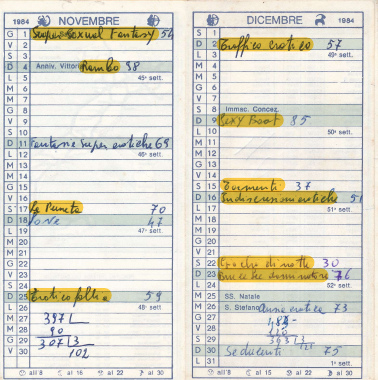 1984 NOVEMBRE
G 1 Super Sexual Fantasy 54
V 2
S 3
D 4 Anniv. Vittoria Rambo 98
L 5 45ª sett.
M 6
M 7
G 8
V 9
S 10
D 11 Fantasie super erotiche 69
L 12 46ª sett.
M 13
M 14
G 15
V 16
S 17 70
D 18 47
L 19 47ª sett.
M 20
M 21
G 22
V 23
S 24
D 25 59
L 26 48ª sett.
M 27 397
M 28 90
G 29 307 3
V 30 102
all'8 al 16 al 22 al 30
DICEMBRE 1984
S 1
D 2 Traffico erotico 57
L 3 49ª sett.
M 4
M 5
G 6
V 7
S 8 Immac. Concez.
D 9 Sexy Boat 85
L 10 50ª sett.
M 11
M 12
G 13
V 14
S 15 37
D 16 Indiscrezioni erotiche 51
L 17 51ª sett.
M 18
M 19
G 20
V 21
S 22 di notte 30
D 23 76
L 24 52ª sett.
M 25 SS. Natale
M 26 S. Stefano erotica 73
G 27
V 28
S 29
D 30 Seducenti 75
L 31 1ª sett.
all'8 al 15 al 22 al 30